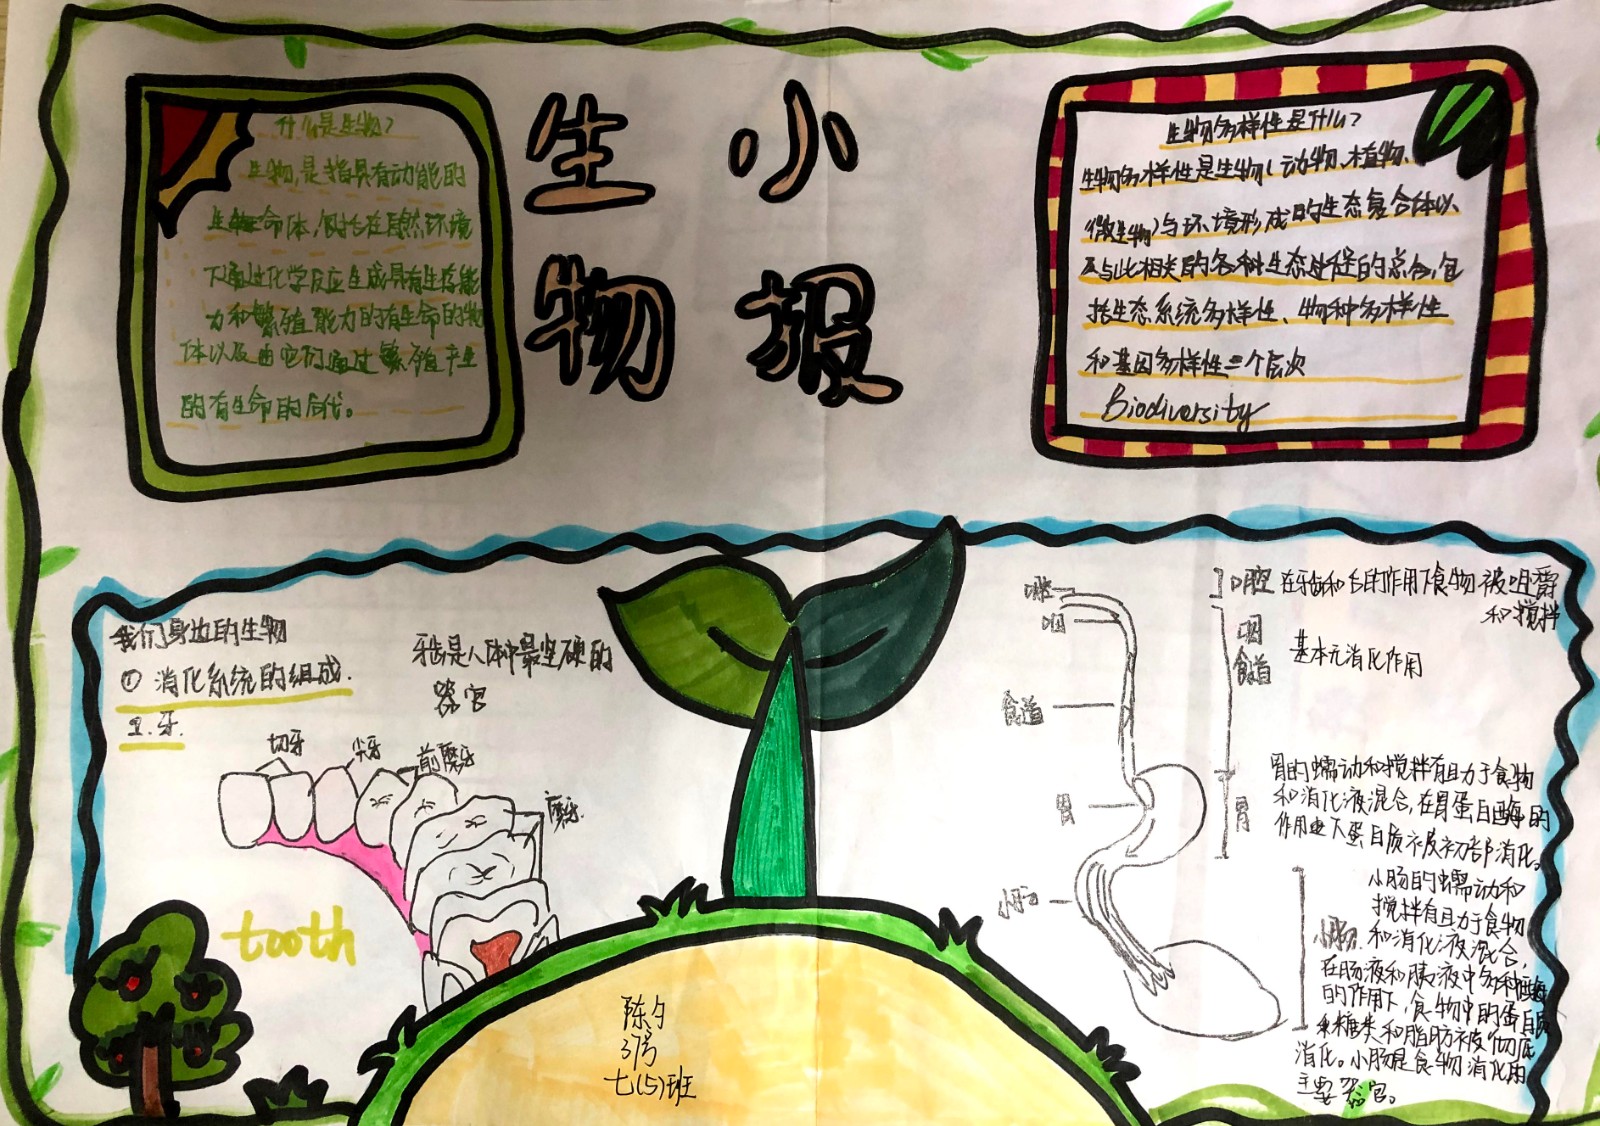 什么是生物?
生物,是指具有动能的
生命体,包括在自然环境
下通过化学反应生成具有生存能
力和繁殖能力的有生命的物
体以及由它们通过繁殖产生
的有生命的后代。
生物
小报
生物多样性是什么?
生物多样性是生物(动物、植物、
微生物)与环境形成的生态复合体以
及与此相关的各种生态过程的总合,包
括生态系统多样性、物种多样性
和基因多样性三个层次
Biodiversity
我们身边的生物
① 消化系统的组成.
1.牙.
牙齿是人体中最坚硬的
器官
切牙
尖牙
前磨牙
磨牙
tooth
咽
食道
胃
小肠
口腔
在牙齿和舌的作用下食物被咀嚼
和搅拌
咽
食道
基本无消化作用
胃
胃的蠕动和搅拌有且力于食物
和消化液混合,在胃蛋白酶的
作用下蛋白质被初部消化。
小肠
小肠的蠕动和
搅拌有且力于食物
和消化液混合,
在肠液和胰液中多种酶
的作用下,食物中的蛋白质
和糖类和脂肪被彻底
消化。小肠是食物消化的
主要器官。
陈夕
37号
七(5)班